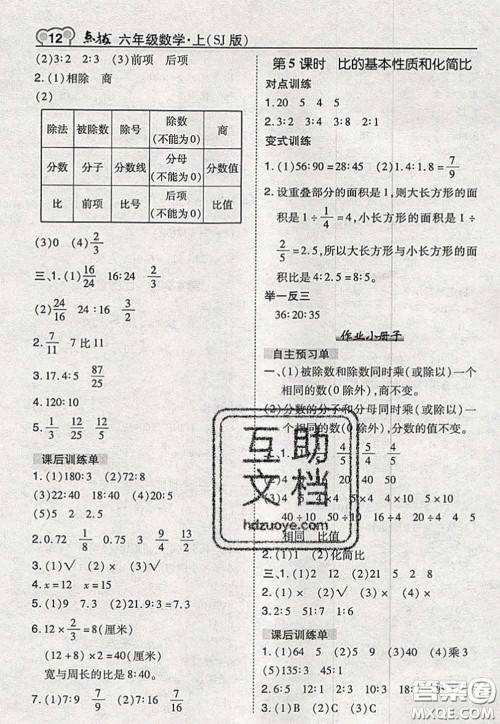 12 点拨 六年级数学·上(SJ版)
(2)3:2 2:3 (3)前项 后项
2.(1)相除 商
(2)
除法 被除数 除号 除数(不能为0) 商
分数 分子 分数线 分母(不能为0) 分数值
比 前项 比号 后项(不能为0) 比值
(3)0 (4)2/3
三、1.(1)16/24 16:24 2/3
(2)24/16 24:16 3/2
2.7/11 7比11
3.17:4.5 87/25
4.120:3
5.1/3 12/25 12:25
课后训练单
1.(1)180:3 (2)7:4
(3)85:0.1
2.0.72 1/8 0.75 3/19
3.(1)√ (3)√
4.x=12 x=15
6.12×2/3=8(厘米)
(12+8)×2=40(厘米)
宽与周长的比是8:40。
7.(1)7:9 (2)7:16
第5课时 比的基本性质和化简比
对点训练
1.20 5 4 5
2.4:3 3:2 3:8 2:1
变式训练
1.(1)56:90=28:45 (2)1.4:8=7/9
2.设重叠部分的面积是1,则大长方形的
面积1÷1/4=4,小长方形的面积是1÷
2/5=2.5,所以大长方形与小长方形的面
积比是4:2.5=8:5。
举一反三
36:20:35
作业小册子
自主预习单
一、(1)被除数和除数同时乘(或除以)一个
相同的数(0除外),商不变。
(2)分数的分子和分母同时乘(或除以)一
个相同的数(0除外),分数的值不变。
4/5 4/5
40÷10 50÷10
相同 比值
2.(1)1 (2)化简比
三、1.(1)12 (2)21
课后训练单
(4)乘3
(5)135:
3.(1)B (2)C
互助文档
hdzuoye.com
答案圈
MXQE.COM